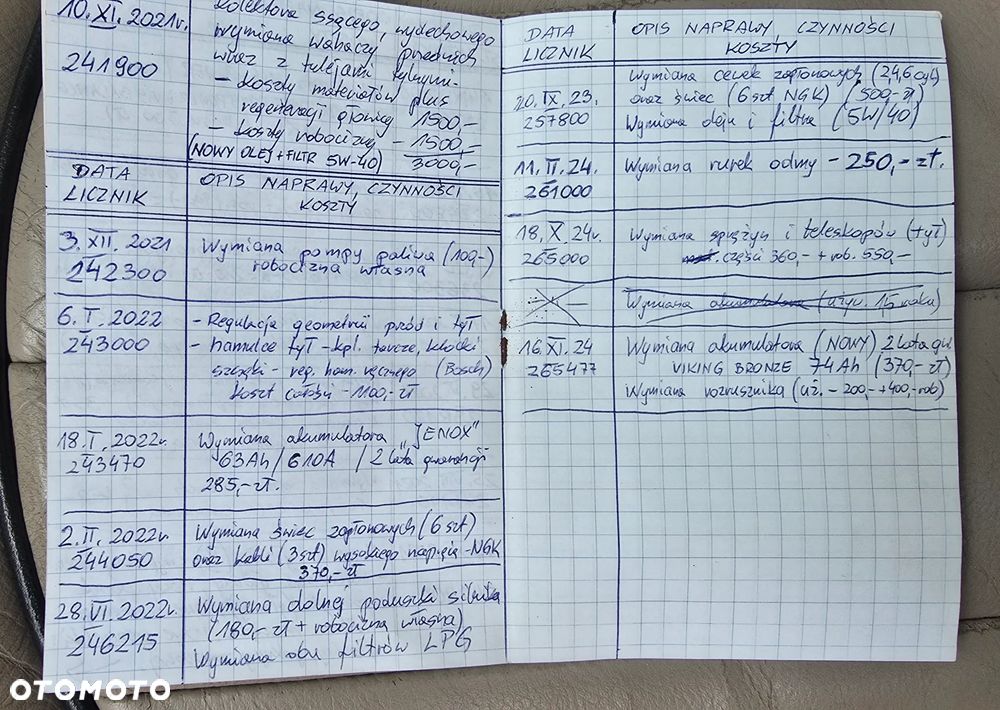 10.XI.2021r.
241900
kolektora ssącego, wydechowego
wymiana wahaczy przednich
wraz z tulejami tylnymi.
- koszty materiałów plus
regeneracji głowicy 1500,-
- koszty robocizny - 1500,-
(NOWY OLEJ + FILTR 5W-40) 3000,-
DATA
LICZNIK
OPIS NAPRAWY, CZYNNOŚCI
KOSZTY
3.XII.2021
242300
Wymiana pompy paliwa (100,-)
robocizna własna
6.I.2022
243000
- Regulacja geometrii przód i tył
- hamulce tył - kpl. tarcze, klocki
szczęki - reg. ham. ręcznego (Bosch)
koszt całości - 1100,- zł
18.I.2022r.
243470
Wymiana akumulatora „JENOX"
63Ah/610A / 2 lata gwarancji
285,- zł.
2.II.2022r.
244050
Wymiana świec zapłonowych (6 szt)
oraz kabli (3szt) wysokiego napięcia - NGK
370,- zł
28.VI.2022r.
246215
Wymiana dolnej poduszki silnika
(180,- zł + robocizna własna)
Wymiana obu filtrów LPG
DATA
LICZNIK
OPIS NAPRAWY, CZYNNOŚCI
KOSZTY
20.IX.23.
257800
Wymiana cewek zapłonowych (2,4,6 cyl)
oraz świec (6szt NGK) (500,- zł)
Wymiana oleju i filtra (5W/40)
11.II.24.
261000
Wymiana rurek odmy - 250,- zł.
18.X.24r.
265000
Wymiana sprężyn i teleskopów (tył)
części 360,- + rob. 550,-
Wymiana akumulatora
16.XI.24
265477
Wymiana akumulatora (NOWY) 2 lata gw
VIKING BRONZE 74Ah (370,- zł)
Wymiana rozrusznika (uż. - 200,- + 400,- rob)
OTOMOTO